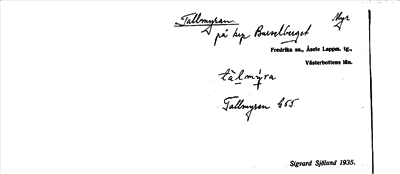 Tallmyran Myr
på krp Barselberget
Fredrika sn., Åsele Lappm. tg.,
Västerbottens län.
tàlmýra
Tallmyren 655
Sigvard Sjölund 1935.